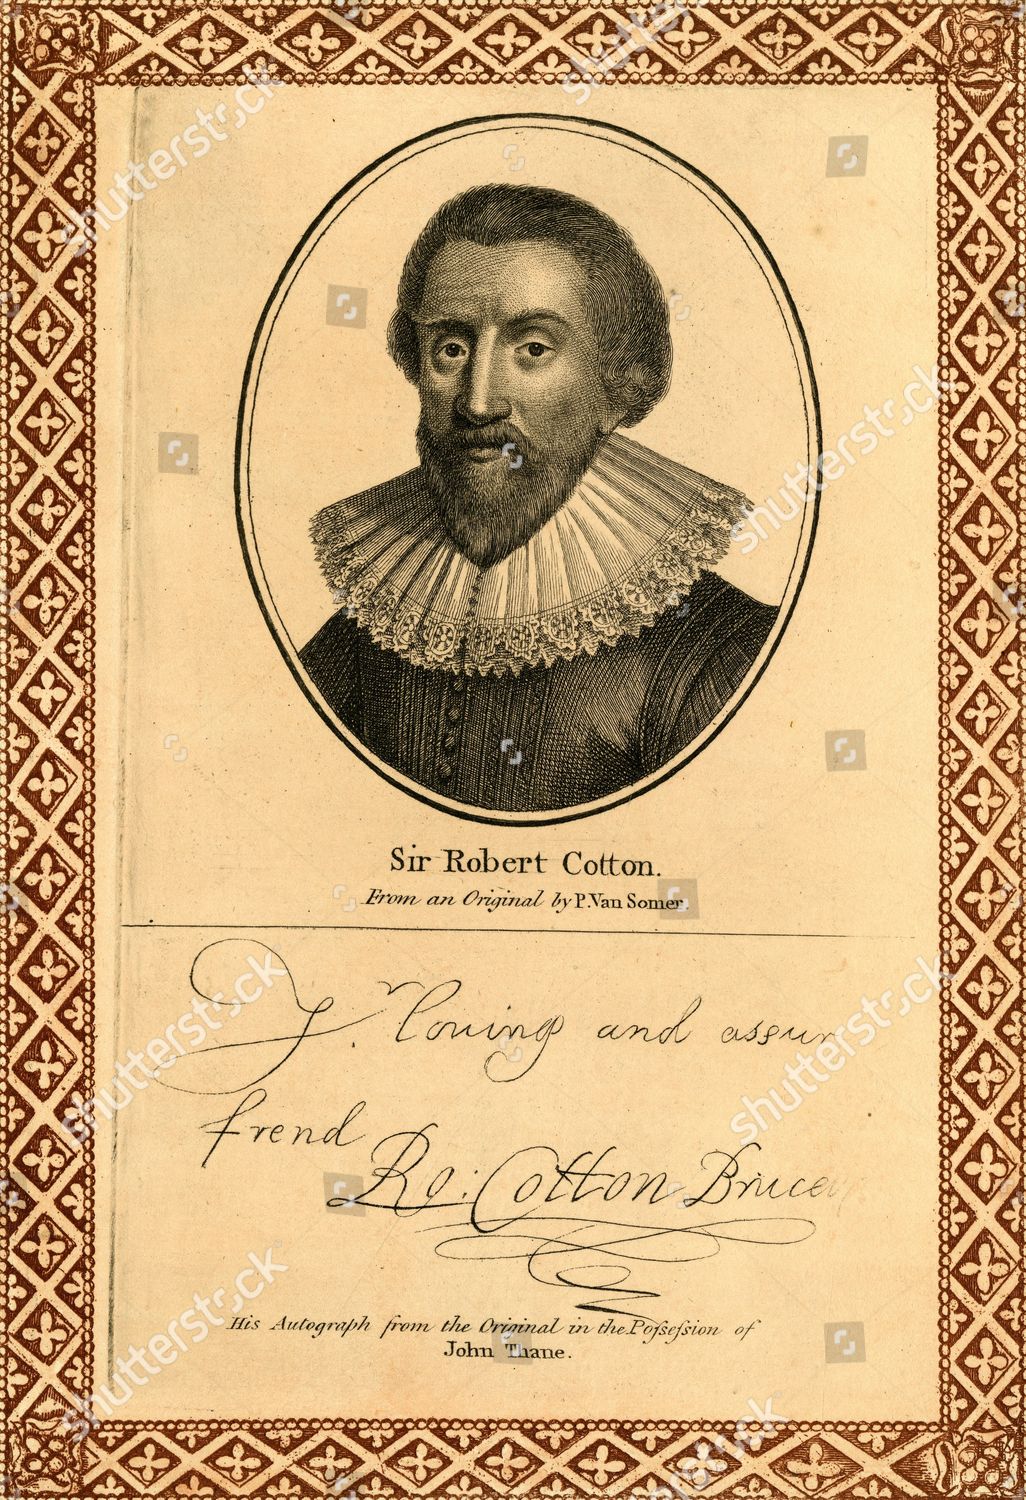 Sir Robert Cotton.
From an Original by P. Van Somer.
Yr. louing and assur
frend
Ro: Cotton Bruceus
His Autograph from the Original in the Poſseſsion of
John Thane.